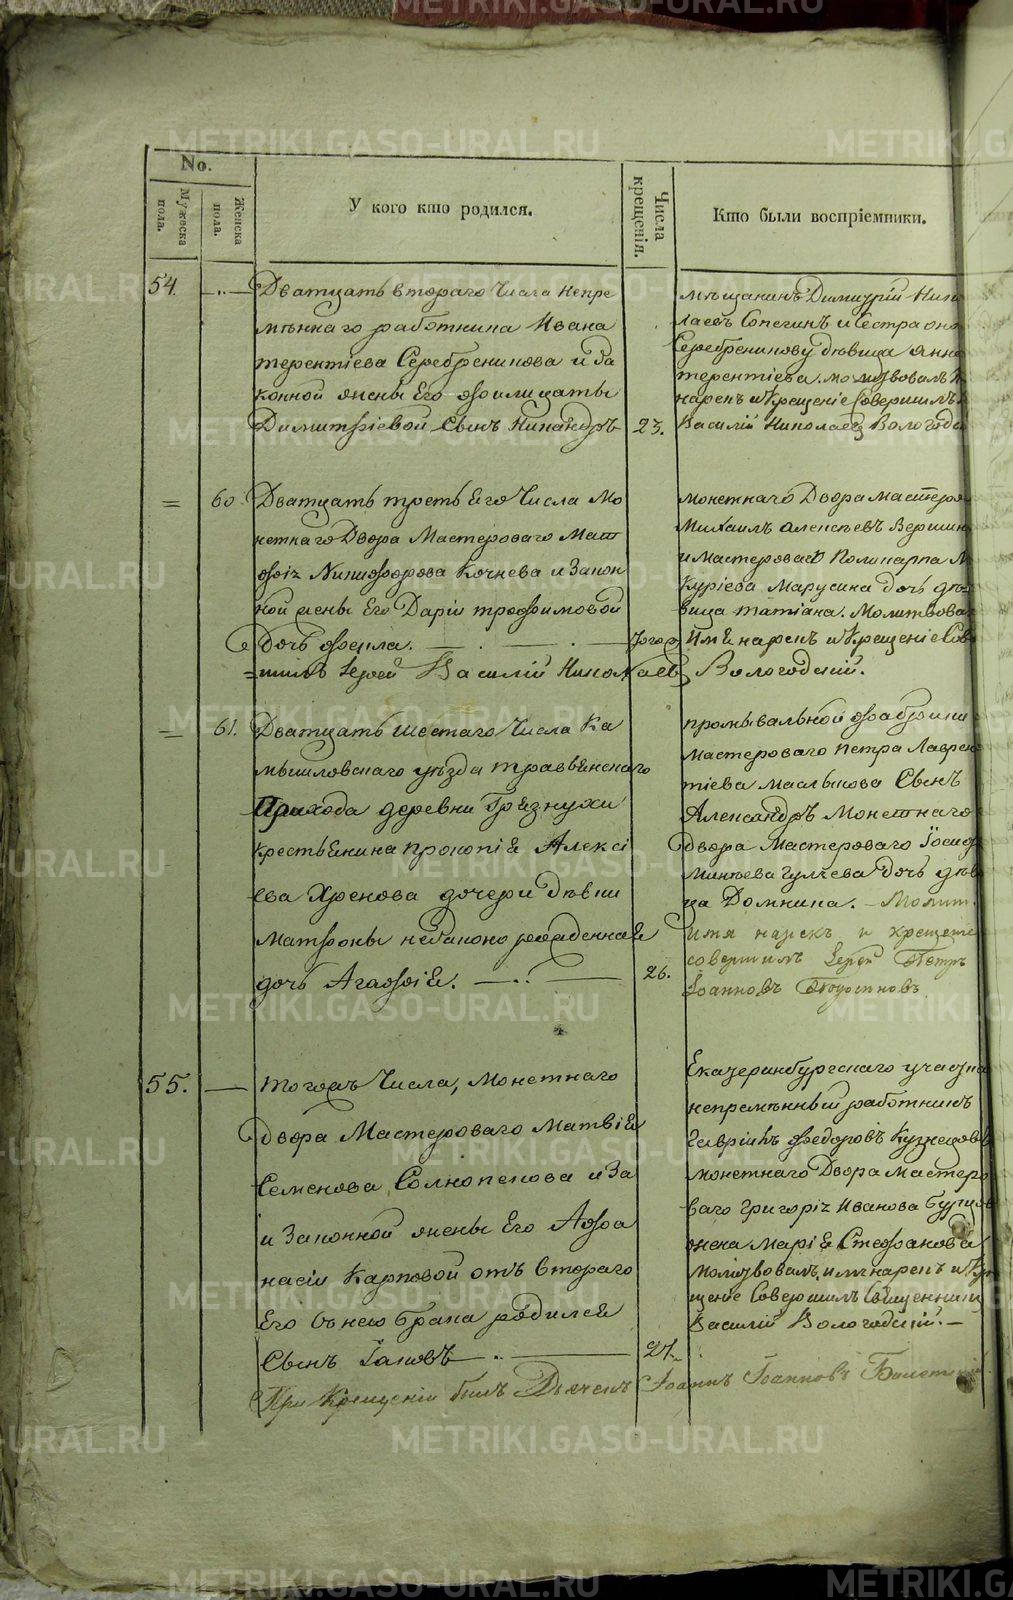 No.
Мужеска пола.
Женска пола.
У кого кто родился.
Числа крещенія.
Кто были воспріемники.
54.
Дватцать втораго Числа Непре
мѣннаго работника Ивана
терентіева Серебреникова и За
конной жены Его филицаты
Димитріевой Сынъ Никандръ
23.
мѣщанинъ Димитрій Нико
лаевъ Сопегинъ и Сестра оно
Серебреникову дѣвица Анна
терентіева. молитвовалъ
нарекъ и Крещеніе Совершилъ
Василій Николаевъ Вологодс
60
Дватцать третьЕго Числа Мо
нетнаго Двора Мастероваго Мат
фѣя Никифорова Кочнева и Закон
ной жены Его Даріи трофимовой
дочь фекла.
тогож
монетнаго Двора мастеров
Михаилъ алексѣевъ Вершин
и мастероваго Поликарпа М
Куріева Марусина дочь дѣ
вица татіана. Молитвова
имЕ нарекъ и Крещеніе Сов
=шилъ Іерей Василій Николаевъ Вологодскій.
61.
Дватцать шестаго Числа Ка
мышловскаго уѣзда травянскаго
Прихода деревни Грязнухи
КрестьЕнина прокопіЕ Алексі
ева Хренова дочери дѣвки
Матроны незаконо рожденнаЕ
дочь АгафіЕ.
26.
промывальной фабрики
мастероваго петра Лаврен
тіева масльцова Сынъ
Александръ Монетнаго
двора Мастероваго Іосиф
Минѣева гулчева дочь дѣв
ца Домнина. Молит.
имя нарекъ и крещеніе
совершилъ Іерей Петръ
Іоанновъ
55.
тогожъ Числа, монетнаго
двора Мастероваго МатвіЕ
Семенова Солнопекова и За
и Законной жены Его Афа
насіи Карповой отъ втораго
Его бнею брака родился
Сынъ Іаковъ
27.
Екатеринбургскаго уѣзда
непремѣнный работникъ
Гавріилъ Федоровъ Кузнецовъ
монетнаго Двора мастеро
ваго григоріЯ Иванова
жена маріЕ Стефанова
молитвовалъ, имЯ нарекъ и Кре
щеніе Совершилъ Священникъ
Василій Вологодскій.
При Крещеніи былъ Дьячекъ Іоаннъ Іоанновъ
METRIKI.GASO-URAL.RU